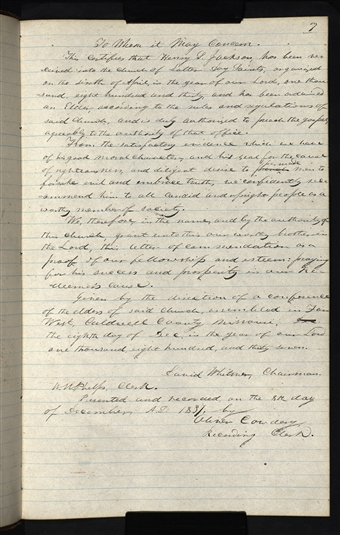 7
To Whom it May Concern.
This Certifies that Henry S. Jackson has been re-
ceived into the church of Latter Day Saints, organized
on the sixth of April, in the year of our Lord, one thou-
sand, eight hundred and thirty and has been ordained
an Elder, according to the rules and regulations of
said Church, and is duly authorized to preach the gospel
agreeably to the authority of that office.
From the satisfactory evidence which we have
of his good moral character, and his zeal for the cause
of righteousness, and diligent desire to persuade men to
forsake evil and embrace truth, we confidently re-
commend him to all candid and upright people as a
worthy member of society.
We, therefore, in the name, and by the authority of
this church, grant unto this our worthy brother in
the Lord, this letter of commendation as a
proof of our fellowship and esteem: praying
for his success and prosperity in our Re-
deemer's cause.
Given by the direction of a conference
of the elders of said church, assembled in Far
West, Caldwell County Missouri,
the eighth day of Dec, in the year of our Lord
one thousand, eight hundred, and thirty seven.
David Whitmer, Chairman.
W. W. Phelps, Clerk.
Presented and recorded on the 8th day
of December A.D. 1837, by
Oliver Cowdery
Recording Clerk.